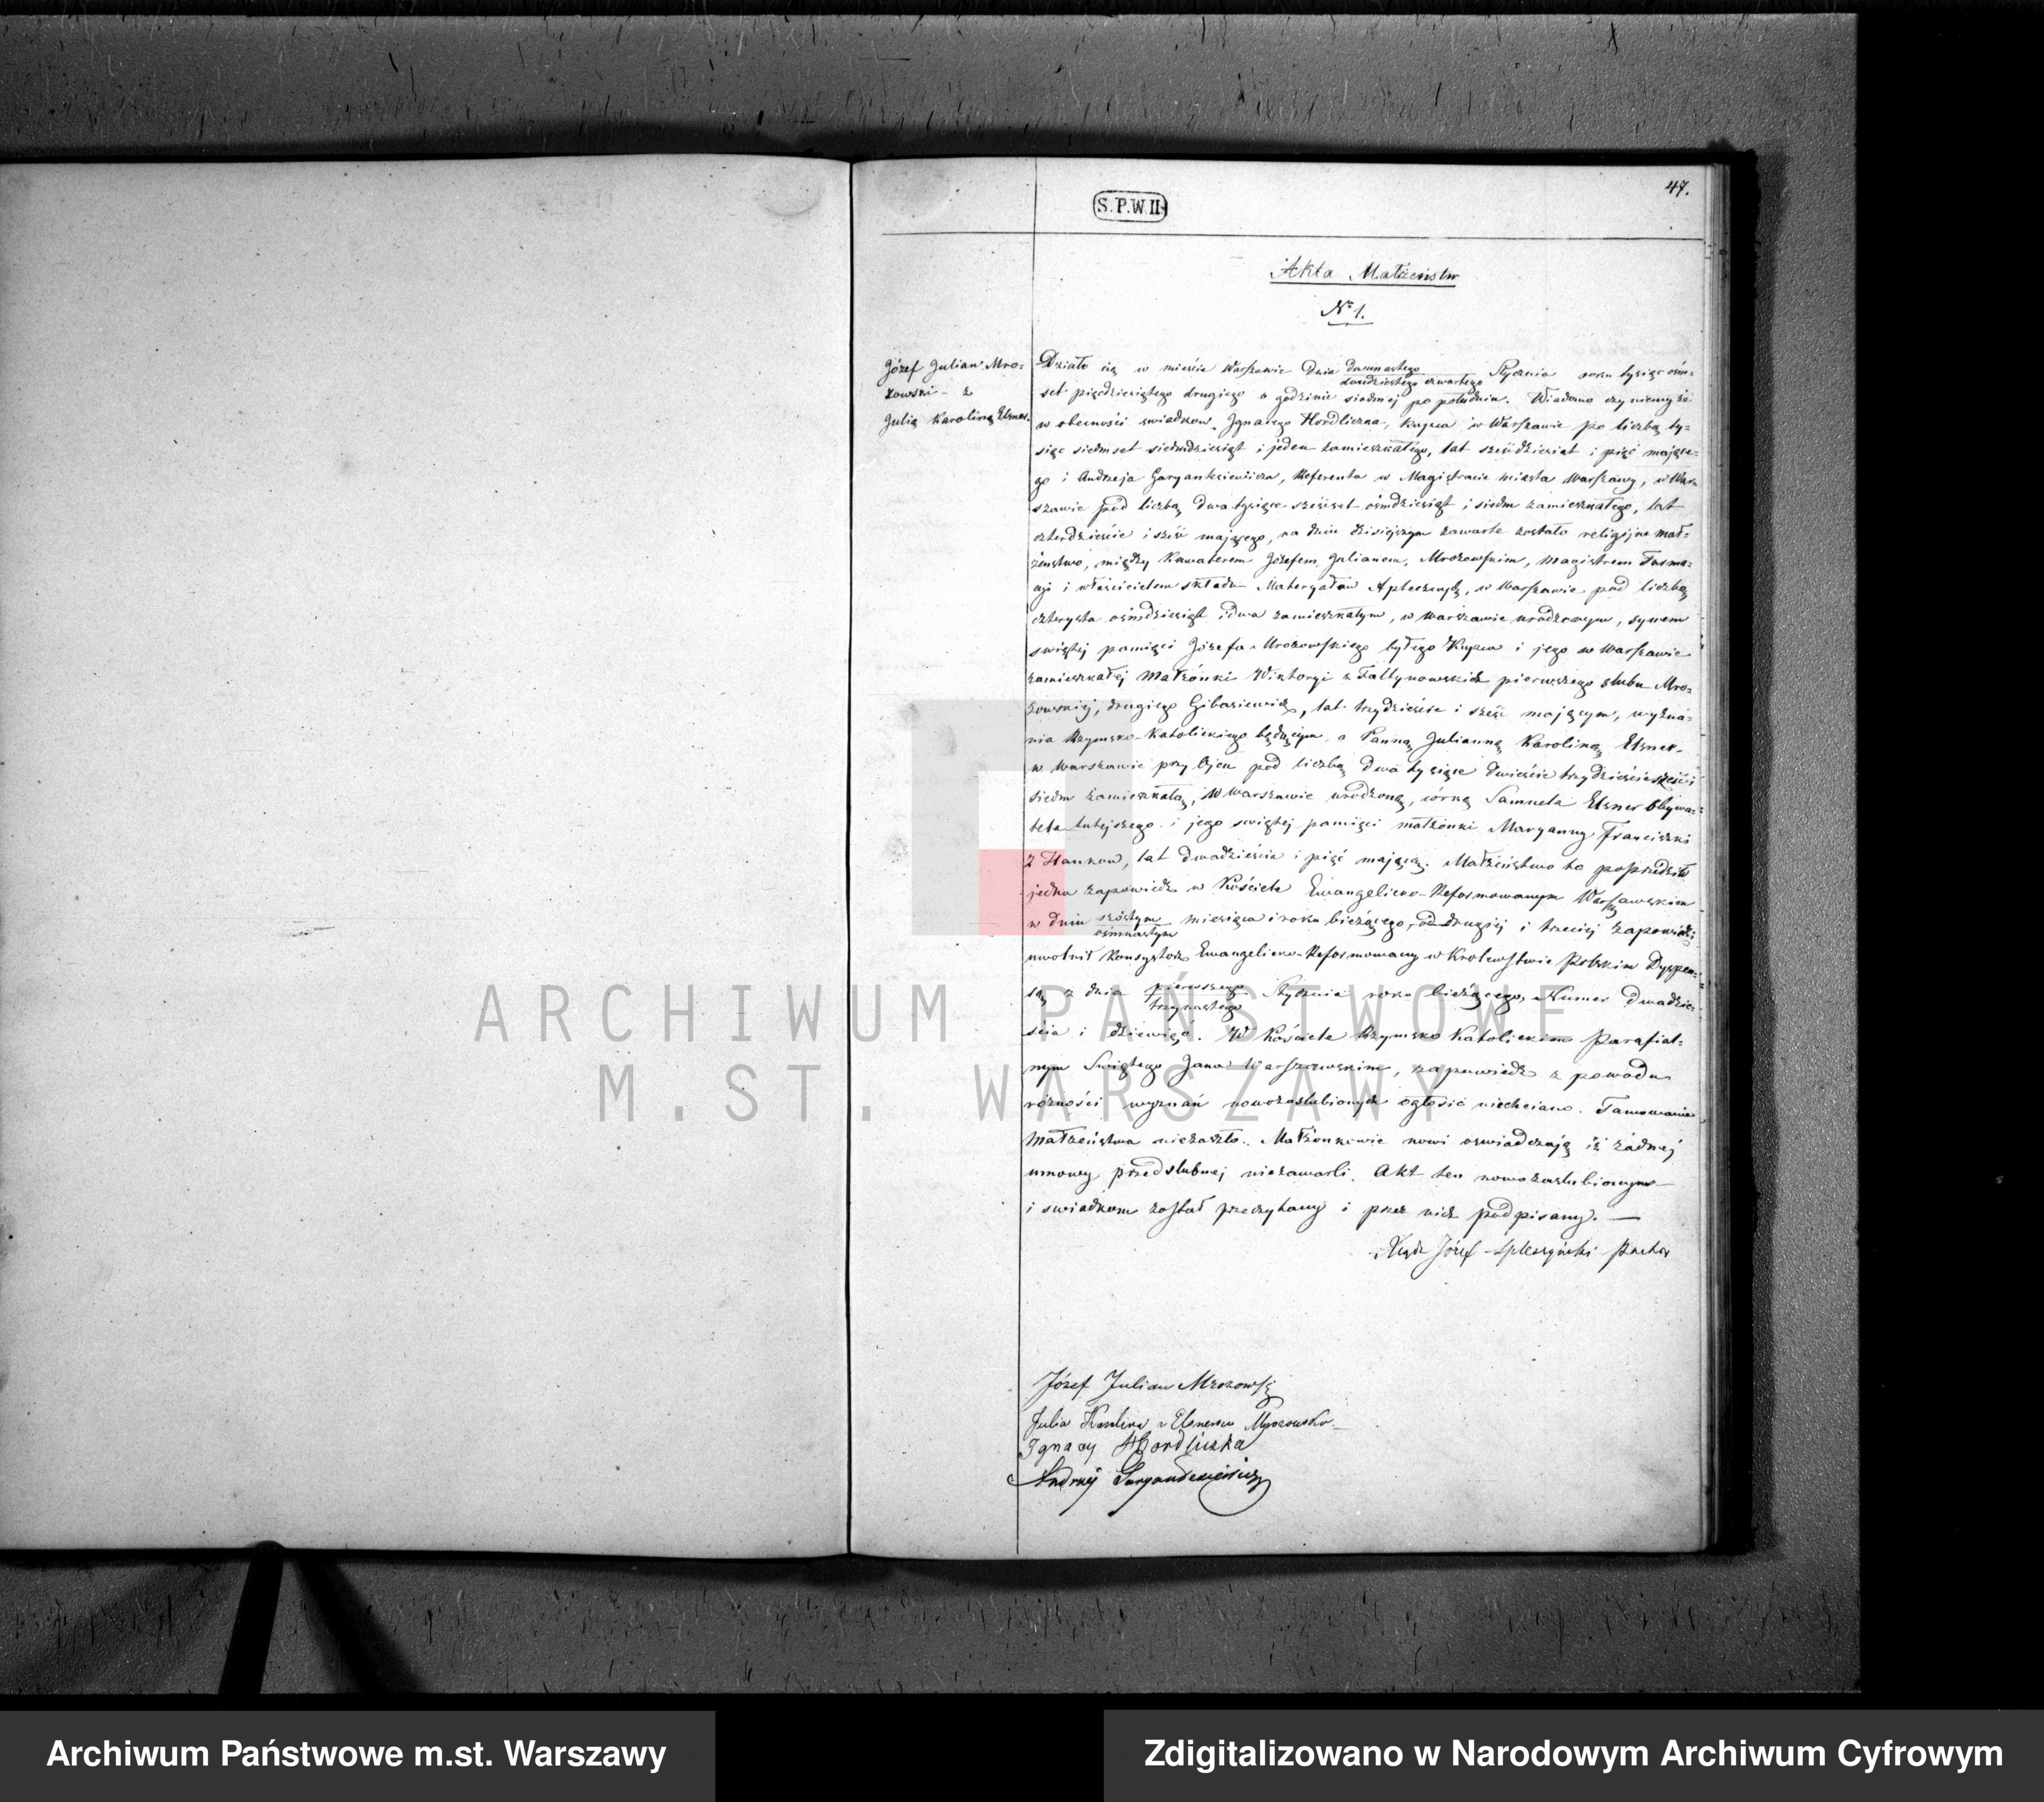 47.
S.P.W.II
Akta Małżeństw
Nr 1.
Józef Julian Mro-
zowski z
Julią Karoliną Elsner.
Działo się w mieście Warszawie dnia dwunastego / dwudziestego czwartego Stycznia roku tysiąc ośm-
set pięćdziesiątego drugiego o godzinie siódmej po południu. Wiadomo czyniemy że
w obecności świadków Ignacego Hordliczka, kupca w Warszawie po liczbą ty-
siąc siedmset siedmdziesiąt i jeden zamieszkałego, lat sześćdziesiąt i pięć mające-
go i Andrzeja Garyantesiewicza, Referenta w Magistracie miasta Warszawy, w War-
szawie pod liczbą dwa tysiące sześćset ośmdziesiąt i siedm zamieszkałego, lat
czterdzieście i sześć mającego, na dniu dzisiejszym zawarte zostało religijne mał-
żeństwo, między Kawalerem Józefem Julianem, Mrozowskim, Magistrem Farma-
cyi i właścicielem składu Materyałów Aptecznych, w Warszawie pod liczbą
czterysta ośmdziesiąt i dwa zamieszkałym, w Warszawie urodzonym, synem
świętej pamięci Józefa Mrozowskiego byłego Kupca i jego w Warszawie
zamieszkałej Małżonki Wiktoryi z Faltynowskich pierwszego ślubu Mro-
zowskiej, drugiego Gibasiewicz, lat trzydzieście i sześć mającym, wyzna-
nia Rzymsko-Katolickiego będącym, a Panną Julianną Karoliną Elsner
w Warszawie przy ulicy pod liczbą dwa tysiące dwieście trzydzieście sześć i
siedm zamieszkałą, w Warszawie urodzoną, córką Samuela Elsner Obywa-
tela tutejszego i jego świętej pamięci małżonki Maryanny Franciszki
z Hauków, lat dwadzieścia i pięć mającą. Małżeństwo to poprzedziła
jedna zapowiedź w Kościele Ewangelicko-Reformowanym Warszawskim
w dniu szóstym / ośmnastym miesiąca i roku bieżącego, od drugiej i trzeciej zapowiedzi
uwolnił Konsystorz Ewangelicko-Reformowany w Królewstwie Polskim Dyspen-
są z dnia pierwszego / trzynastego Stycznia roku bieżącego, Numer dwadzie-
ścia i dziewięć. W Kościele Rzymsko Katolickim Parafial-
nym Świętego Jana Warszawskim, zapowiedź z powodu
różności wyznań nowozaślubionych ogłosić niechciano. Tamowanie
Małżeństwa niezaszło. Małżonkowie nowi oświadczają iż żadnej
umowy przedślubnej niezawarli. Akt ten nowozaślubionym
i świadkom został przeczytany i przez nich podpisany. —
Xiądz Józef Spleszyński Pastor
Józef Julian Mrozowski
Julia Karolina z Elsnerów Mrozowska
Ignacy Hordliczka
Andrzej Garyantesiewicz
ARCHIWUM PAŃSTWOWE
M.ST. WARSZAWY
Archiwum Państwowe m.st. Warszawy
Zdigitalizowano w Narodowym Archiwum Cyfrowym